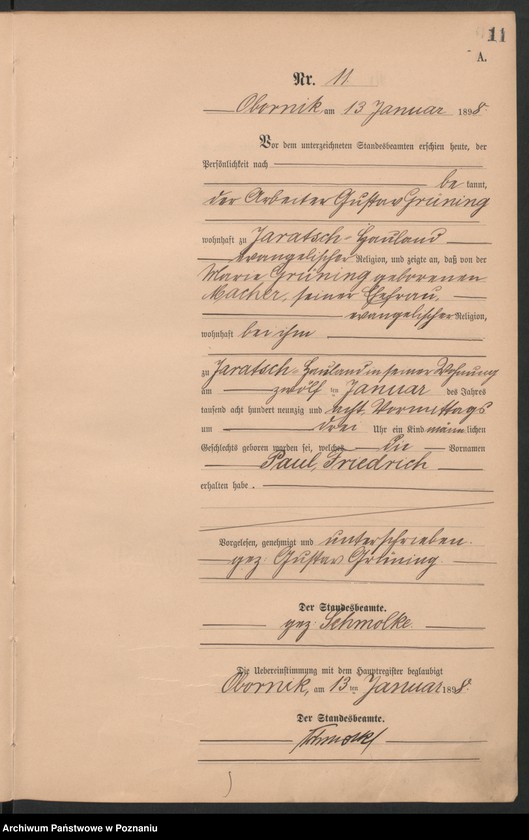 11
A.
Nr. 11
Obornik, am 13 Januar 1898.
Vor dem unterzeichneten Standesbeamten erschien heute, der
Persönlichkeit nach
be kannt,
der Arbeiter Gustav Grüning
wohnhaft zu Jaratsch-Hauland
evangelischer Religion, und zeigte an, daß von der
Marie Grüning geborenen
Macher, seiner Ehefrau,
evangelischer Religion,
wohnhaft bei ihm
zu Jaratsch-Hauland in seiner Wohnung
am zwölf ten Januar des Jahres
tausend acht hundert neunzig und acht Vormittags
um drei Uhr ein Kind männlichen
Geschlechts geboren worden sei, welches die Vornamen
Paul, Friedrich
erhalten habe.
Vorgelesen, genehmigt und unterschrieben.
gez. Gustav Grüning
Der Standesbeamte.
gez. Schmolke.
Die Uebereinstimmung mit dem Hauptregister beglaubigt
Obornik, am 13 ten Januar 1898.
Der Standesbeamte.
Schmolke
Archiwum Państwowe w Poznaniu